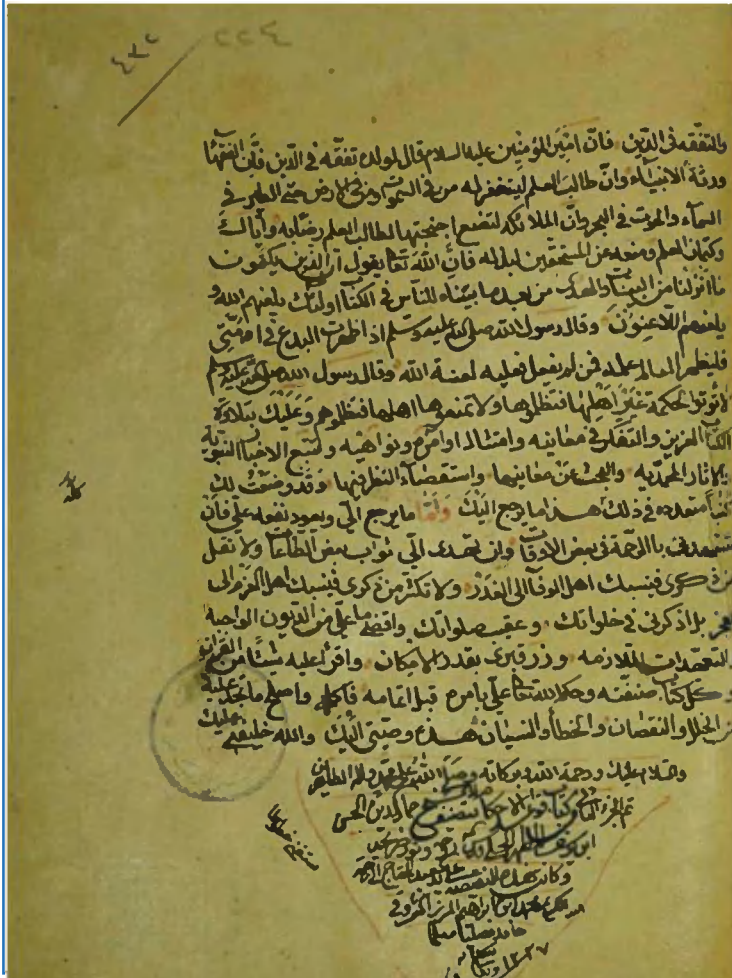 ٤٣٢
٤٢٢
والتفقه فى الدين فان امير المؤمنين عليه السلام قال لولده تفقه فى الدين فان الفقهاء
ورثة الانبياء وان طالب العلم ليتغفر له من فى السموات ومن فى الارض حتى الطير فى
السماء والحوت فى البحر وان الملائكة لتضع اجنحتها لطالب العلم رضا به واياك
وكتمان العلم ومنعه عن المستحقين لبذله فان الله تعا يقول ان الذين يكتمون
ما انزلنا من البينات والهدى من بعد ما بيناه للناس فى الكتاب اولئك يلعنهم الله و
يلعنهم اللاعنون وقال رسول الله صلى الله عليه وسلم اذا ظهرت البدع فى امتى
فليظهر العالم علمه فمن لم يفعل فعليه لعنة الله وقال رسول الله صلى الله عليه وسلم
لا تؤتوا الحكمة غير اهلها فتظلموها ولا تمنعوها اهلها فتظلموهم وعليك بتلاوة
الكتاب العزيز والتفكر فى معانيه وامتثال اوامره ونواهيه وتتبع الاخبار النبوية
والاثار المحمدية والبحث عن معانيها واستقصاء النظر فيها وقد وضعت لك
كتبا متعدده فى ذلك هذا ما يرجع اليك واما ما يرجع الى ويعود نفعه على فان
تتعهدنى بالترحم فى بعض الاوقات وان تهدى الى ثواب بعض الطاعات ولا تقلل
من ذكرى فينسبك اهل الوفا الى الغدر ولا تكثر من ذكرى فينسبك اهل العزم الى
العجز بل اذكرنى فى خلواتك وعقيب صلواتك واقض ما على من الديون الواجبة
والتعهدات اللازمه وزر قبرى بقدر الامكان واقرا عليه شيئا من القران
وكل كتاب صنفته وحكم الله تعا على بامره قبل اتمامه فاكمله واصلح ما تجد فيه
من الخلل والنقصان والخطأ والنسيان هذه وصيتى اليك والله خليفتى عليك
والسلام عليك ورحمة الله وبركاته وصلى الله على محمد واله الطاهرين
تم الجزء الثانى من كتاب قواعد الاحكام تصنيف جمال الدين الحسن
ابن يوسف المطهر الحلى
حامدا مصليا مسلما
١٢٣٧